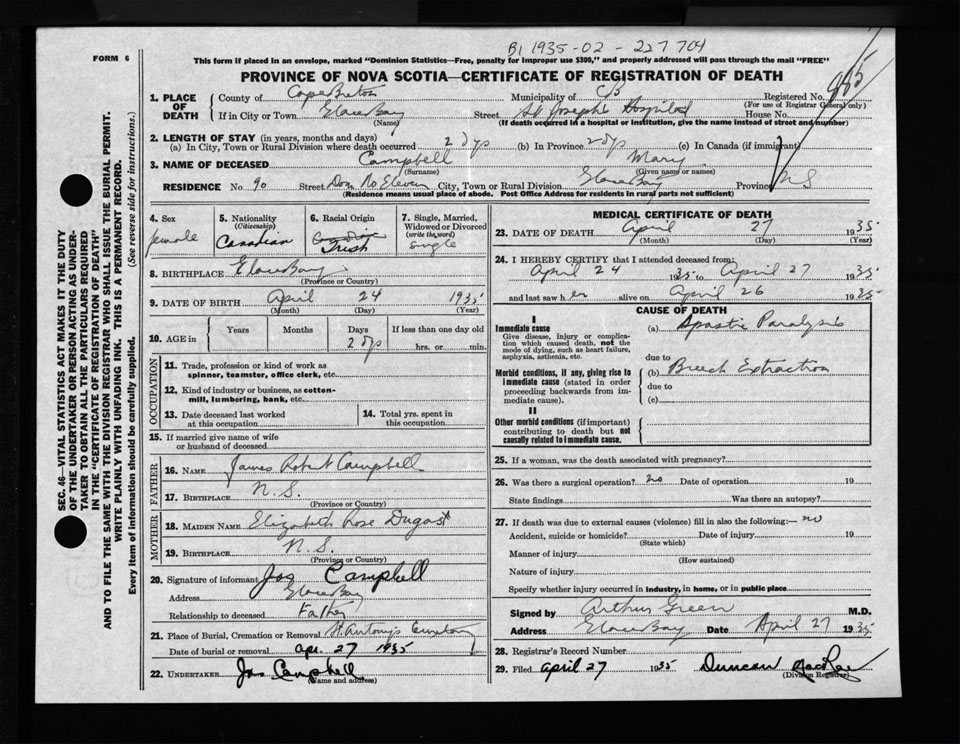 B1 1935-02-227704
FORM 6
This form if placed in an envelope, marked "Dominion Statistics—Free, penalty for improper use $300," and properly addressed will pass through the mail "FREE"
PROVINCE OF NOVA SCOTIA—CERTIFICATE OF REGISTRATION OF DEATH
985
SEC. 46—VITAL STATISTICS ACT MAKES IT THE DUTY
OF THE UNDERTAKER OR PERSON ACTING AS UNDER-
TAKER TO OBTAIN ALL THE PARTICULARS REQUIRED
IN THE "CERTIFICATE OF REGISTRATION OF DEATH"
AND TO FILE THE SAME WITH THE DIVISION REGISTRAR WHO SHALL ISSUE THE BURIAL PERMIT.
WRITE PLAINLY WITH UNFADING INK. THIS IS A PERMANENT RECORD.
Every item of Information should be carefully supplied. (See reverse side for instructions.)
1. PLACE OF DEATH
County of Cape Breton Municipality of CB Registered No.
(For use of Registrar General only)
If in City or Town Glace Bay Street St Joseph's Hospital House No.
(Name) (If death occurred in a hospital or institution, give the name instead of street and number)
2. LENGTH OF STAY (in years, months and days)
(a) In City, Town or Rural Division where death occurred 2 dys (b) In Province 2 dys (c) In Canada (if immigrant)
3. NAME OF DECEASED Campbell Mary
(Surname) (Given name or names)
RESIDENCE No. 90 Street City, Town or Rural Division Glace Bay Province NS
(Residence means usual place of abode. Post Office Address for residents in rural parts not sufficient)
4. Sex
female
5. Nationality
(Citizenship)
Canadian
6. Racial Origin
Irish
7. Single, Married,
Widowed or Divorced
(write the word)
single
8. BIRTHPLACE Glace Bay
(Province or Country)
9. DATE OF BIRTH April 24 1935
(Month) (Day) (Year)
10. AGE in
Years Months Days If less than one day old
2 dys hrs. or min.
OCCUPATION
11. Trade, profession or kind of work as
spinner, teamster, office clerk, etc.
12. Kind of industry or business, as cotton-
mill, lumbering, bank, etc.
13. Date deceased last worked
at this occupation
14. Total yrs. spent in
this occupation
15. If married give name of wife
or husband of deceased
FATHER
16. NAME James Robert Campbell
17. BIRTHPLACE N.S.
(Province or Country)
MOTHER
18. MAIDEN NAME Elizabeth Rose Dugast
19. BIRTHPLACE N.S.
(Province or Country)
20. Signature of informant Jas Campbell
Address Glace Bay
Relationship to deceased Father
21. Place of Burial, Cremation or Removal St. Antony's Cemetery
Date of burial or removal apr. 27 1935
22. UNDERTAKER Jas Campbell
(Name and address)
MEDICAL CERTIFICATE OF DEATH
23. DATE OF DEATH April 27 1935
(Month) (Day) (Year)
24. I HEREBY CERTIFY that I attended deceased from:
April 24 1935 to April 27 1935
and last saw her alive on April 26 1935
CAUSE OF DEATH
I
Immediate cause
Give disease, injury or complica-
tion which caused death, not the
mode of dying, such as heart failure,
asphyxia, asthenia, etc.
(a) Spastic Paralysis
due to
Morbid conditions, if any, giving rise to
immediate cause (stated in order
proceeding backwards from im-
mediate cause).
(b) Breech Extraction
due to
(c)
II
Other morbid conditions (if important)
contributing to death but not
causally related to immediate cause.
25. If a woman, was the death associated with pregnancy?
26. Was there a surgical operation? no Date of operation 19
State findings Was there an autopsy?
27. If death was due to external causes (violence) fill in also the following:— no
Accident, suicide or homicide? Date of injury 19
(State which)
Manner of injury
(How sustained)
Nature of injury
Specify whether injury occurred in industry, in home, or in public place
Signed by Arthur Green M.D.
Address Glace Bay Date April 27 1935
28. Registrar's Record Number
29. Filed april 27 1935 Duncan MacRae
(Division Registrar)